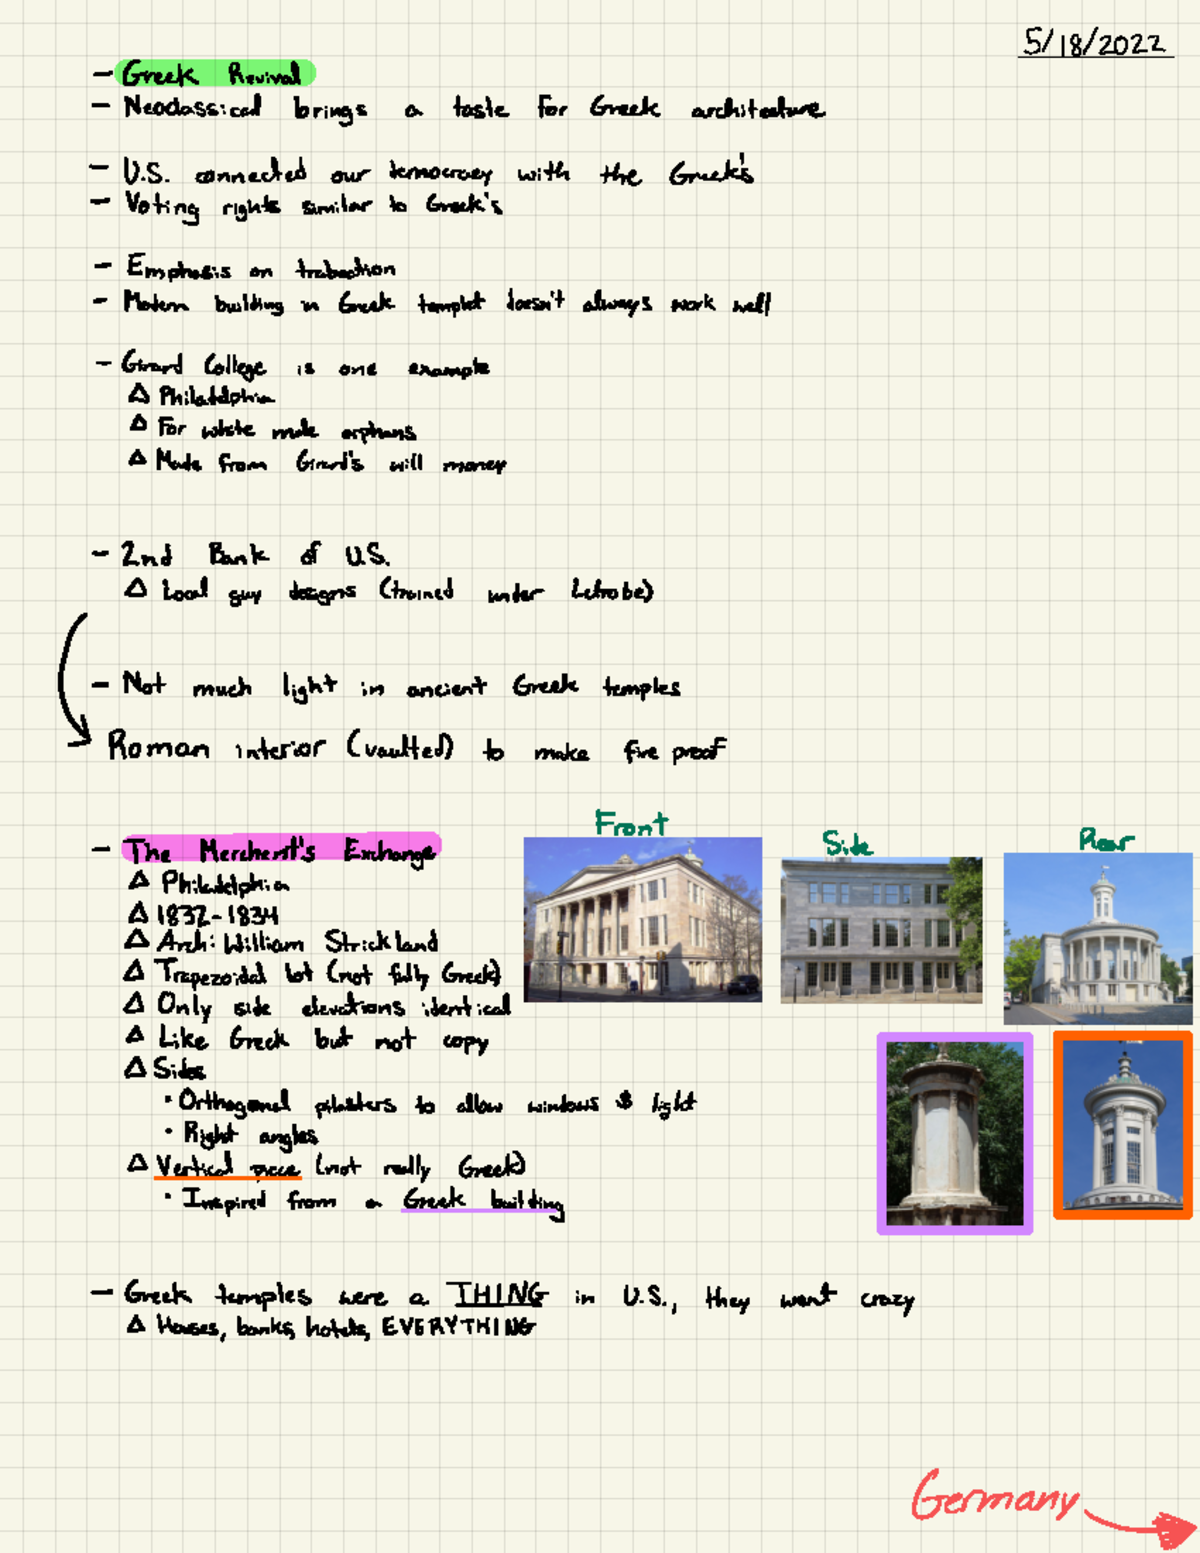 5/18/2022
- Greek Revival
- Neoclassical brings a taste for Greek architecture
- U.S. connected our democracy with the Greek's
- Voting rights similar to Greek's
- Emphasis on trabeation
- Modern building in Greek templet doesn't always work well
- Girard College is one example
△ Philadelphia
△ For white male orphans
△ Made from Girard's will money
- 2nd Bank of U.S.
△ Local guy designs (trained under Latrobe)
- Not much light in ancient Greek temples
Roman interior (vaulted) to make fire proof
Front
Side
Rear
- The Merchent's Exchange
△ Philadelphia
△ 1832-1834
△ Arch: William Strickland
△ Trapezoidal lot (not fully Greek)
△ Only side elevations identical
△ Like Greek but not copy
△ Sides
• Orthogonal pilasters to allow windows & light
• Right angles
△ Vertical piece (not really Greek)
• Inspired from a Greek building
- Greek temples were a THING in U.S., they went crazy
△ Houses, banks, hotels, EVERYTHING
Germany